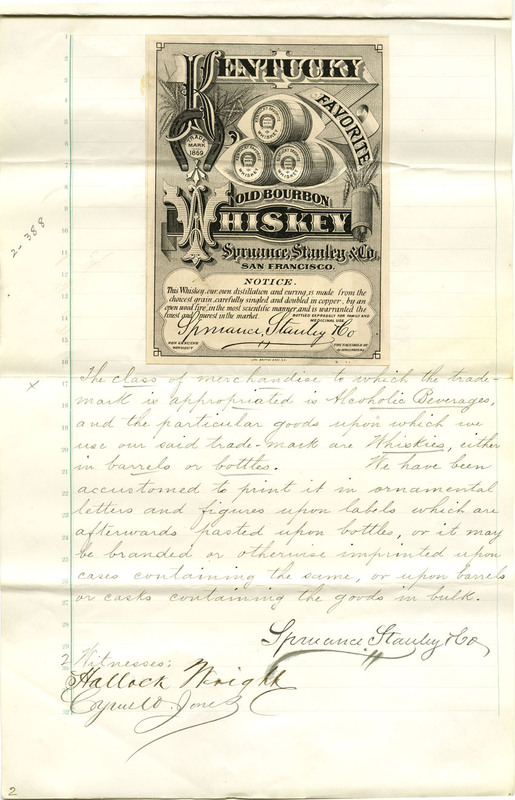 KENTUCKY
FAVORITE
TRADE
MARK
1869
WHISKEY
WHISKEY
WHISKEY
OLD BOURBON
WHISKEY
Spruance, Stanley & Co.
SAN FRANCISCO.
NOTICE.
This Whiskey, our own distillation and curing, is made from the
choicest grain, carefully singled and doubled in copper, by an
open wood fire, in the most scientific manner, and is warranted the
finest and purest in the market.
BOTTLED EXPRESSLY FOR FAMILY AND
MEDICINAL USE.
Spruance, Stanley & Co
2-388
1
2
3
4
5
6
7
8
9
10
11
12
13
14
15
16
x
17 The class of merchandise to which the trade-
18 mark is appropriated is Alcoholic Beverages,
19 and the particular goods upon which we
20 use our said trade-mark are Whiskies, either
21 in barrels or bottles. We have been
22 accustomed to print it in ornamental
23 letters and figures upon labels which are
24 afterwards pasted upon bottles, or it may
25 be branded or otherwise imprinted upon
26 cases containing the same, or upon barrels
27 or casks containing the goods in bulk.
28
Spruance Stanley & Co
29
2 Witnesses:
Hallock Wright
Cyrus W. Jones
32
2